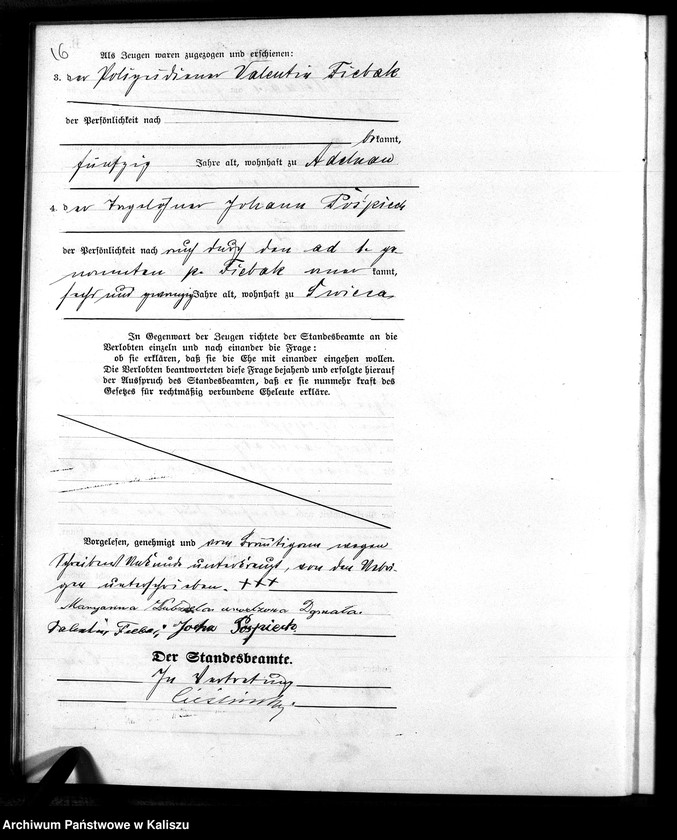 16
Als Zeugen waren zugezogen und erschienen:
3. der Polizeidiener Valentin Fiebak
der Persönlichkeit nach
bekannt,
fünfzig Jahre alt, wohnhaft zu Adelnau
4. der Tagelöhner Johann Pośpiech
der Persönlichkeit nach auch durch den ad 3 ge-
nannten p. Fiebak aner kannt,
sechs und zwanzig Jahre alt, wohnhaft zu Swieca
In Gegenwart der Zeugen richtete der Standesbeamte an die
Verlobten einzeln und nach einander die Frage:
ob sie erklären, daß sie die Ehe mit einander eingehen wollen.
Die Verlobten beantworteten diese Frage bejahend und erfolgte hierauf
der Ausspruch des Standesbeamten, daß er sie nunmehr kraft des
Gesetzes für rechtmäßig verbundene Eheleute erkläre.
Vorgelesen, genehmigt und vom Bräutigam wegen
Schreibens Unkunde unterkreuzt, von den Uebri-
gen unterschrieben. +++
Maryanna owdowa Dymała
Valentin Fiebak, Johan Pośpiech
Der Standesbeamte.
In Vertretung
Cieślinsky.
Archiwum Państwowe w Kaliszu